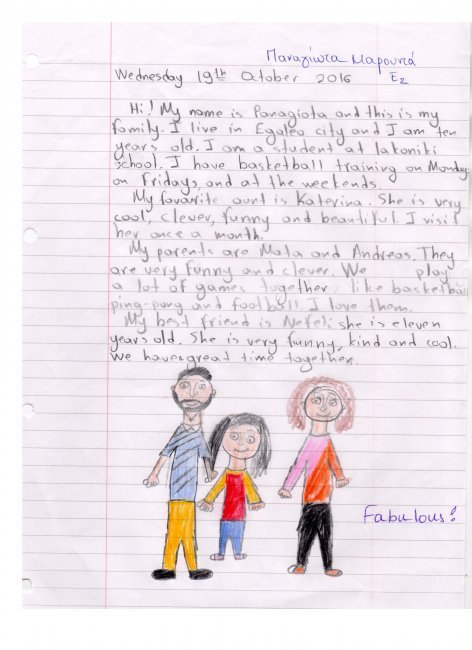 Παναγιώτα Μαρουντά
Wednesday 19th October 2016 Ε2
Hi! My name is Panagiota and this is my
family. I live in Egaleo city and I am ten
years old. I am a student at lakoniki
school. I have basketball training on Mondays
on Fridays and at the weekends.
My favourite aunt is Katerina. She is very
cool, clever, funny and beautiful. I visit
her once a month.
My parents are Mata and Andreas. They
are very funny and clever. We play
a lot of games together, like basketball
ping-pong and football. I love them.
My best friend is Nefeli she is eleven
years old. She is very funny, kind and cool.
We have great time together.
Fabulous!